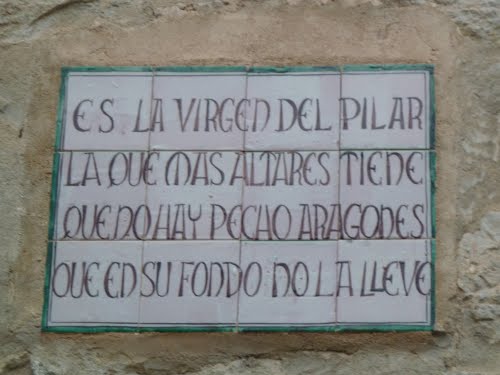 ES LA VIRGEN DEL PILAR
LA QUE MAS ALTARES TIENE
QUE NO HAY PECHO ARAGONES
QUE EN SU FONDO NO LA LLEVE